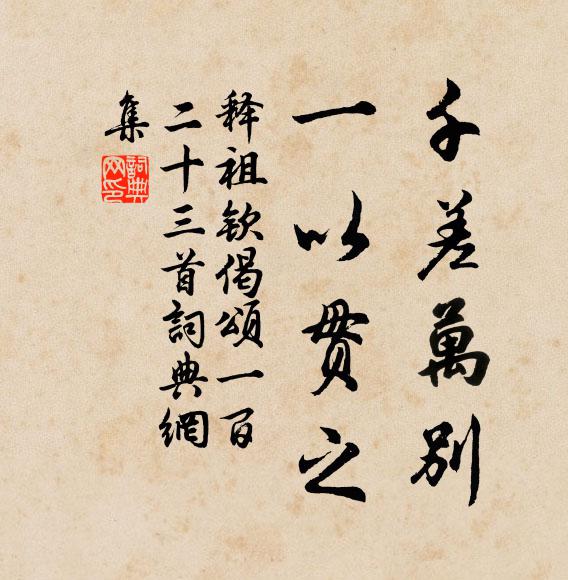 千差萬別
一以貫之
释祖欽偈頌一百
二十三首詞典網
集
詞典
网印